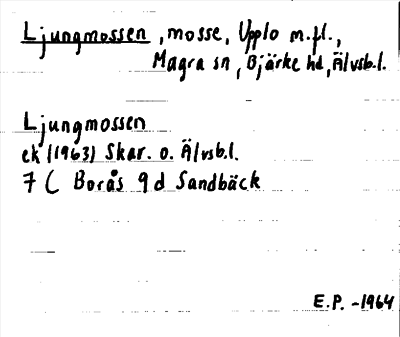 Ljungmossen, mosse, Upplo m.fl.,
Magra sn, Bjärke hd, Älvsb.l.
Ljungmossen
ek (1963) Skar. o. Älvsb.l.
7 C Borås 9 d Sandbäck
E.P. -1964